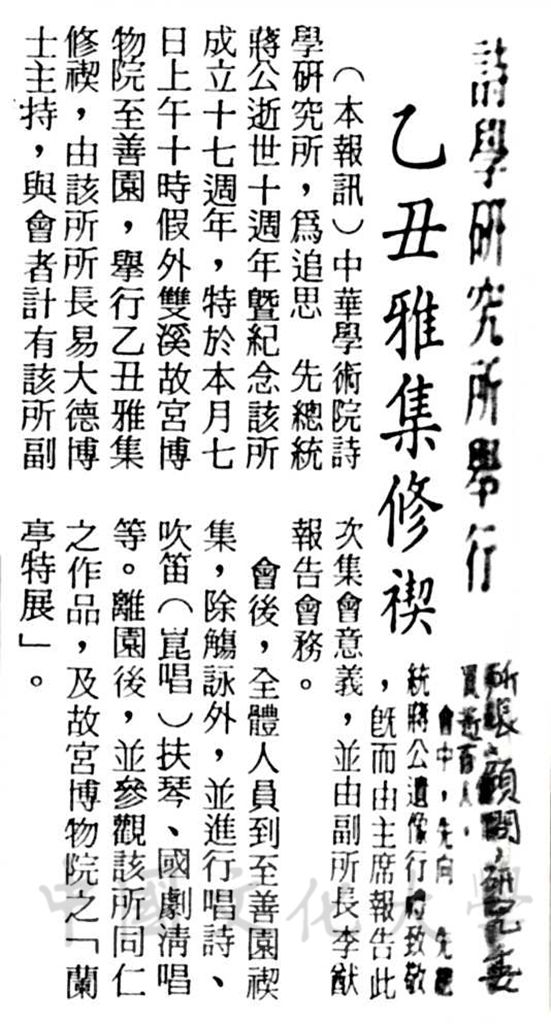 詩學研究所舉行
乙丑雅集修禊
（本報訊）中華學術院詩
學研究所，爲追思　先總統
蔣公逝世十週年暨紀念該所
成立十七週年，特於本月七
日上午十時假外雙溪故宮博
物院至善園，舉行乙丑雅集
修禊，由該所所長易大德博
士主持，與會者計有該所副
所長、顧問，研究委
員近百人，
會中，先向　先總
統蔣公遺像行禮致敬
，旣而由主席報告此
次集會意義，並由副所長李猷
報告會務。
會後，全體人員到至善園禊
集，除觴詠外，並進行唱詩、
吹笛（崑唱）扶琴、國劇淸唱
等。離園後，並參觀該所同仁
之作品，及故宮博物院之「蘭
亭特展」。
中國文化大學